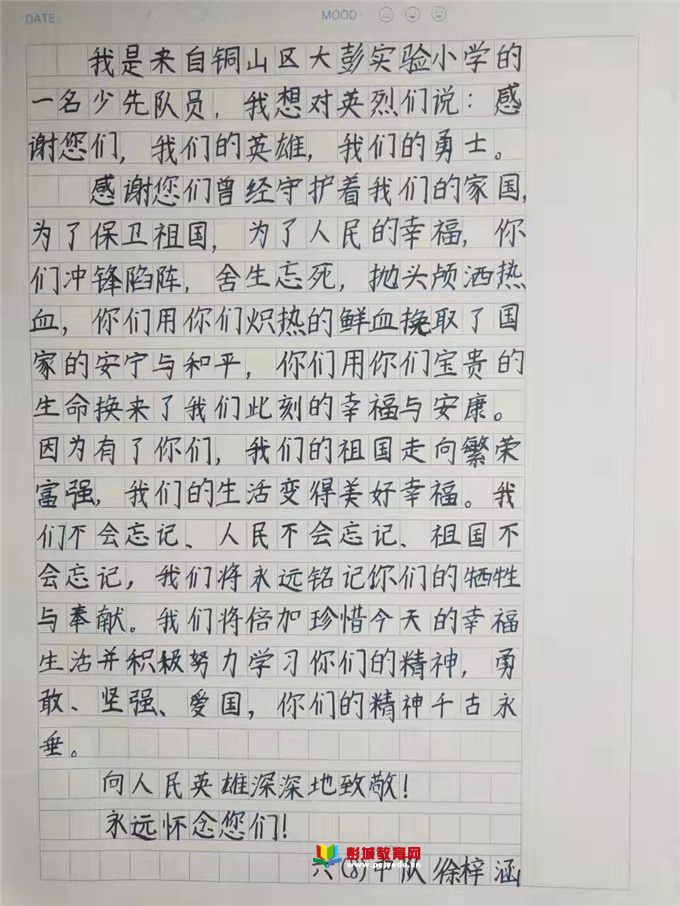 DATE:
MOOD:
我是来自铜山区大彭实验小学的
一名少先队员，我想对英烈们说：感
谢您们，我们的英雄，我们的勇士。
感谢您们曾经守护着我们的家国，
为了保卫祖国，为了人民的幸福，你
们冲锋陷阵，舍生忘死，抛头颅洒热
血，你们用你们炽热的鲜血挽取了国
家的安宁与和平，你们用你们宝贵的
生命换来了我们此刻的幸福与安康。
因为有了你们，我们的祖国走向繁荣
富强，我们的生活变得美好幸福。我
们不会忘记、人民不会忘记、祖国不
会忘记，我们将永远铭记你们的牺牲
与奉献。我们将倍加珍惜今天的幸福
生活并积极努力学习你们的精神，勇
敢、坚强、爱国，你们的精神千古永
垂。
向人民英雄深深地致敬！
永远怀念您们！
彭城教育网
六(8)中队徐梓涵